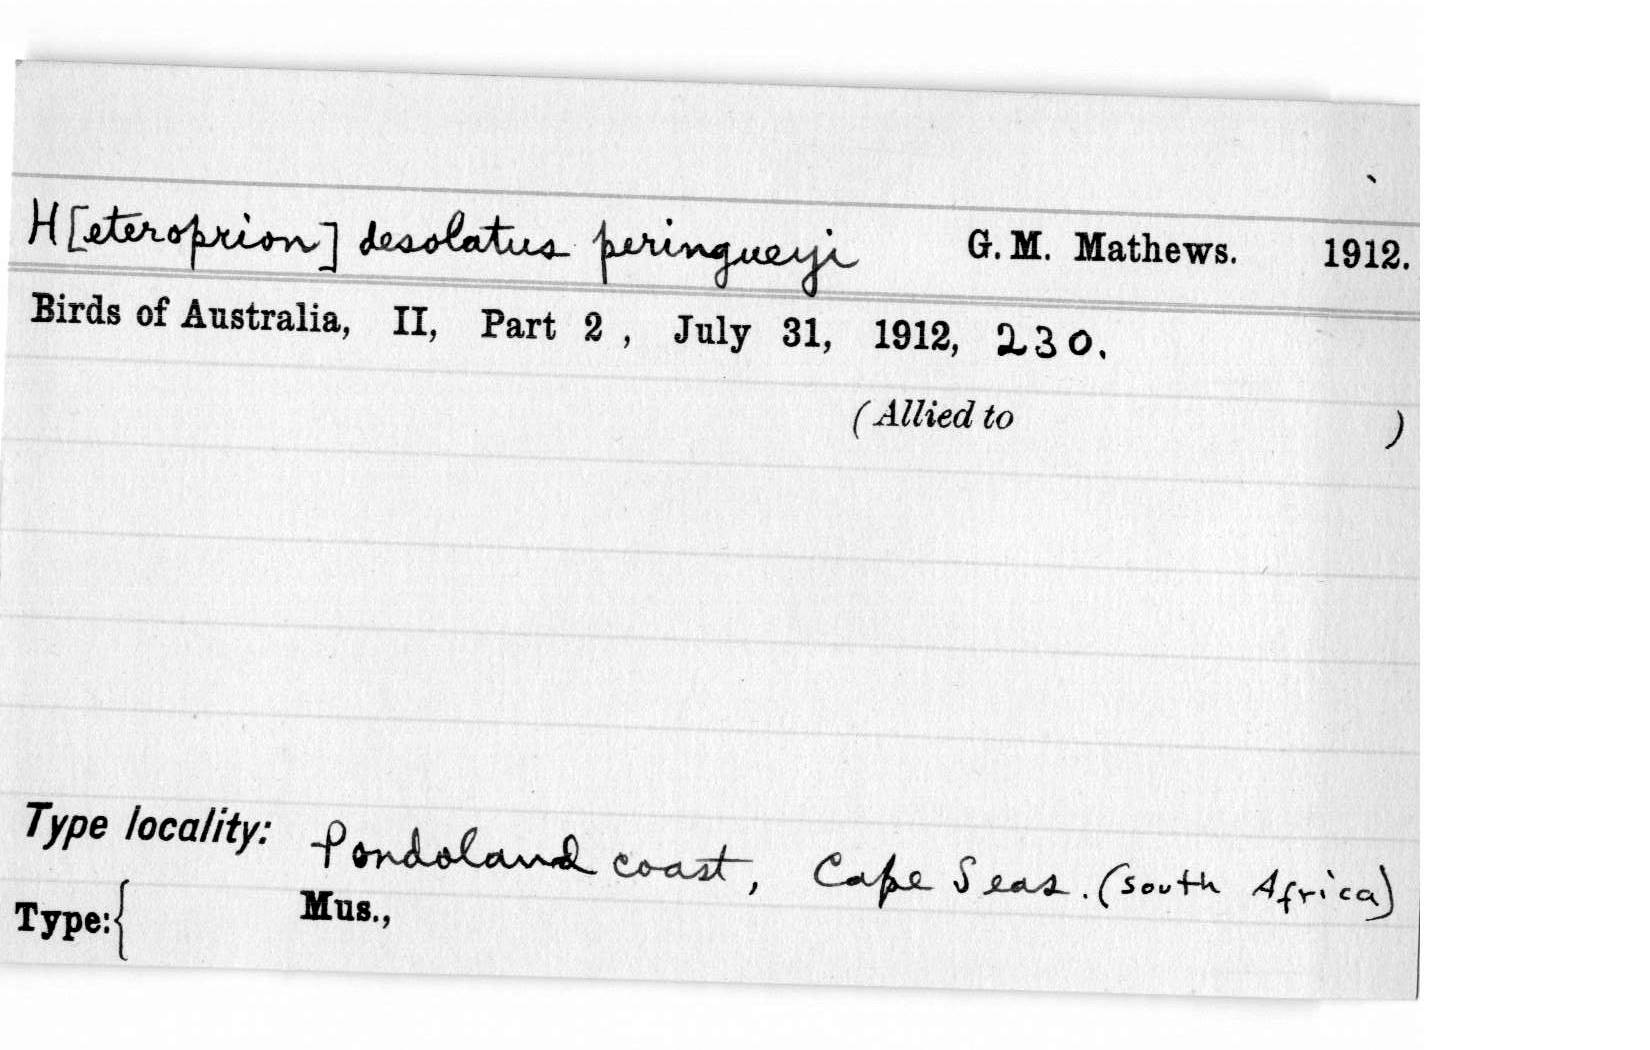 H[eteroprion] desolatus peringueyi G. M. Mathews. 1912.
Birds of Australia, II, Part 2 , July 31, 1912, 230.
(Allied to )
Type locality: Pondoland coast, Cape Seas. (South Africa)
Type:{ Mus.,